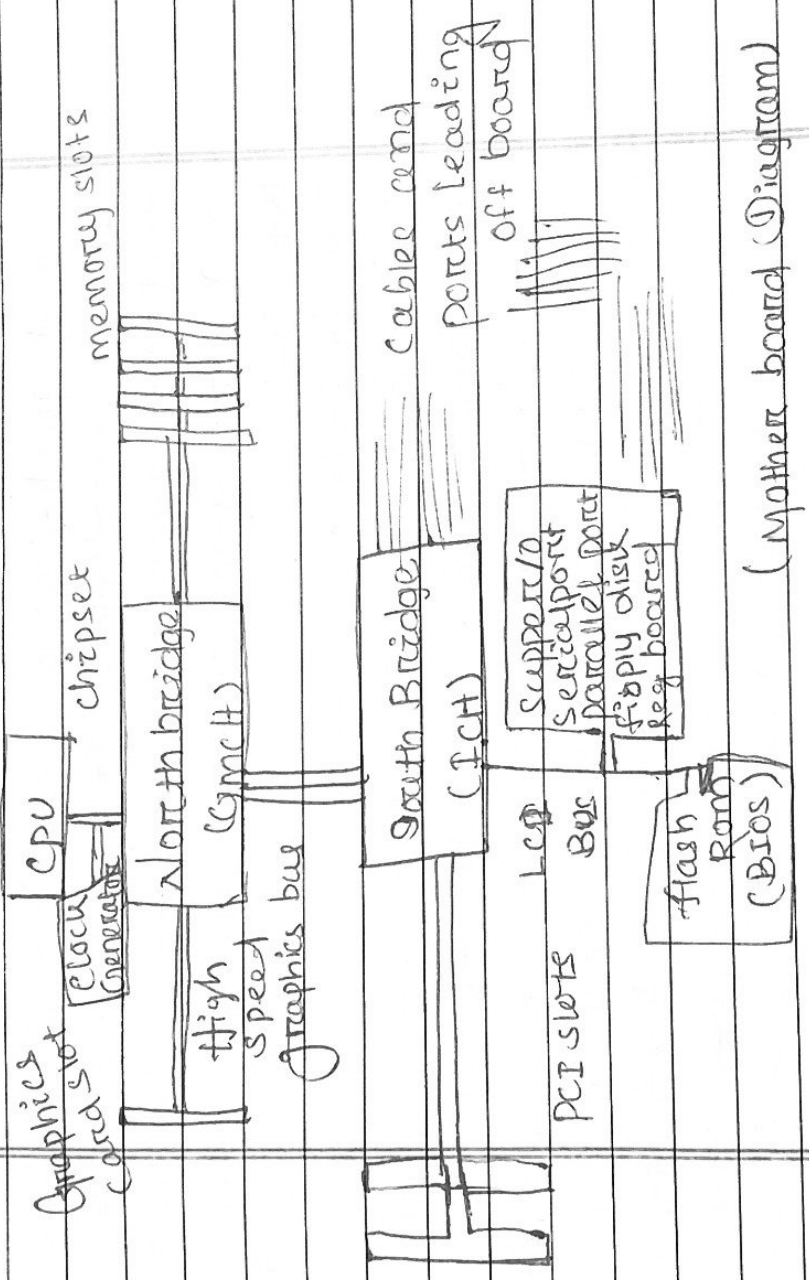 CPU
Graphics
card slot
Clock
Generator
chipset
memory slots
North bridge
(GmcH)
High
speed
graphics bus
South Bridge
(ICH)
Cables and
ports leading
off board
LCP
Bus
PCI slots
Supper I/O
Serial port
parallel port
floppy disk
Key board
flash
ROM
(BIOS)
(Mother board Diagram)